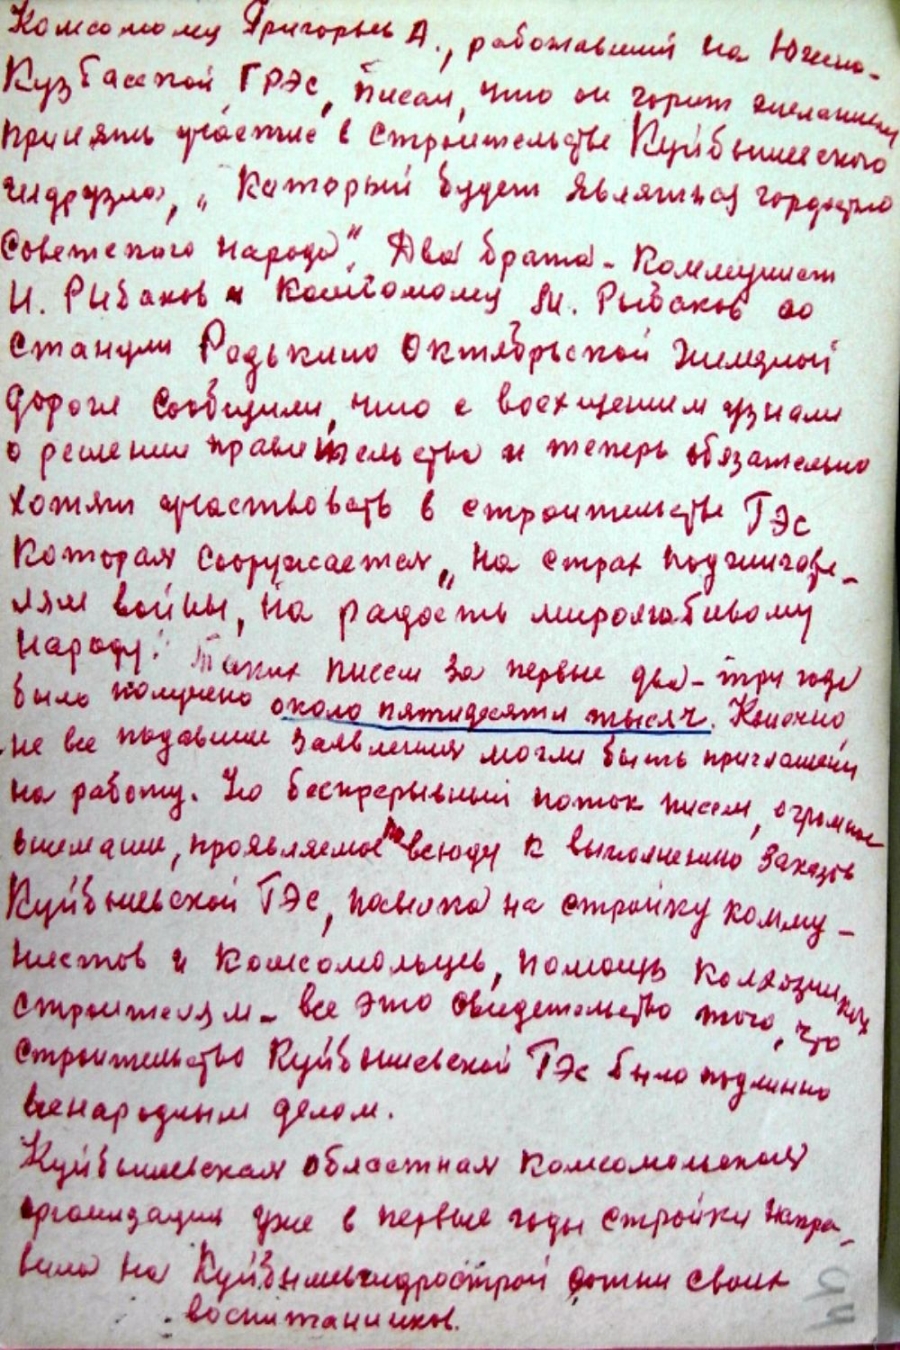 Комсомолец Григорьев А., работавший на Южно-
Кузбасской ГРЭС, писал, что он горит желанием
принять участие в строительстве Куйбышевского
гидроузла, „который будет являться гордостью
Советского народа". Два брата - коммунист
И. Рыбаков и комсомолец М. Рыбаков со
станции Редькино Октябрьской железной
дороги сообщили, что с восхищением узнали
о решении правительства и теперь обязательно
хотят участвовать в строительстве ГЭС
которая сооружается „на страх поджигате-
лям войны, на радость миролюбивому
народу". Таких писем за первые два-три года
было получено около пятидесяти тысяч. Конечно
не все подавшие заявления могли быть приглашены
на работу. Но беспрерывный поток писем, огромное
внимание, проявляемое повсюду к выполнению заказов
Куйбышевской ГЭС, посылка на стройку комму-
нистов и комсомольцев, помощь колхозников
строителям - все это свидетельство того, что
строительство Куйбышевской ГЭС было подлинно
всенародным делом.
Куйбышевская областная комсомольская
организация уже в первые годы стройки напра-
вила на Куйбышевгидрострой сотни своих
воспитанников.